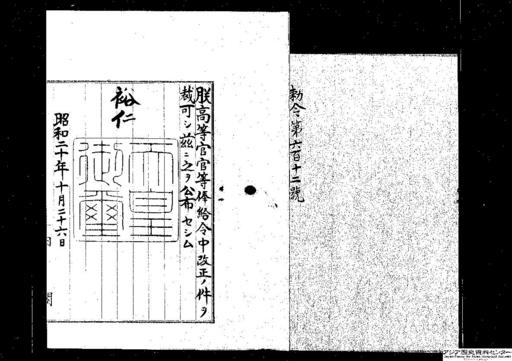 勅令第六百十二號
朕高等官官等俸給令中改正ノ件ヲ
裁可シ茲ニ之ヲ公布セシム
裕仁
天皇
御璽
昭和二十年十月二十六日
内閣
アジア歴史資料センター
Japan Center for Asian Historical Records